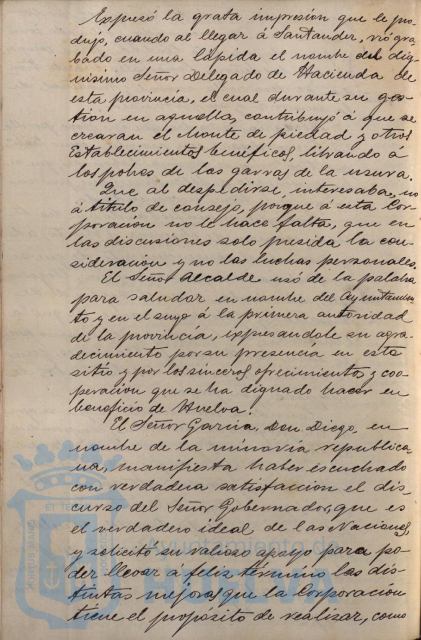 Expresó la grata impresión que le pro-
dujo, cuando al llegar á Santander, vió gra-
bado en una lápida el nombre del dig-
nísimo Señor Delegado de Hacienda de
esta provincia, el cual durante su ges-
tion en aquella, contribuyó á que se
crearan el Monte de piedad y otros
Establecimientos benéficos, librando á
los pobres de las garras de la usura.
Que al despedirse, interesaba, no
á título de consejo, porque á esta Cor-
poracion no le hace falta, que en
las discusiones solo presida la con-
sideracion y no las luchas personales.
El Señor Alcalde usó de la palabra
para saludar en nombre del Ayuntamien-
to y en el suyo á la primera autoridad
de la provincia, expresandole su agra-
decimiento por su presencia en este
sitio y por los sinceros ofrecimientos y coo-
peracion que se ha dignado hacer en
beneficio de Huelva.
El Señor Garcia, Don Diego, en
nombre de la minoría republica-
na, manifiesta haber escuchado
con verdadera satisfaccion el dis-
curso del Señor Gobernador, que es
el verdadero ideal de las Naciones,
y solicitó su valioso apoyo para po-
der llevar á feliz término las dis-
tintas mejoras que la Corporacion
tiene el proposito de realizar, como
Ayuntamiento de
HUELVA